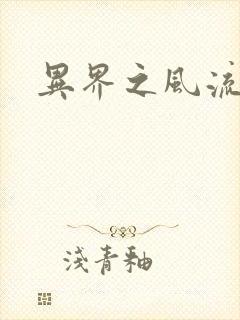 異界之風流
淺青釉